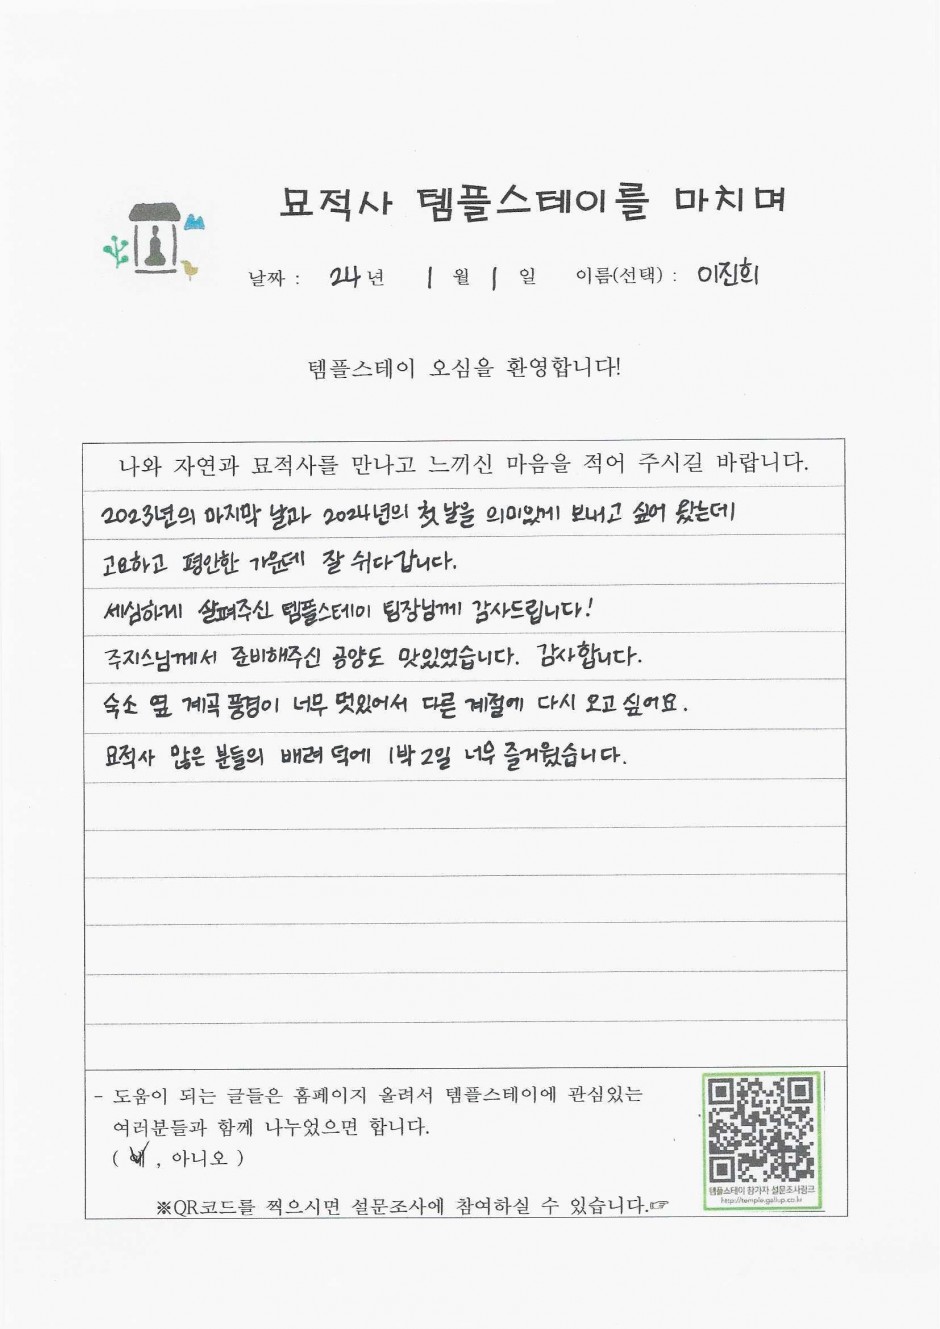 묘적사 템플스테이를 마치며
날짜 : 24년 1월 1일 이름(선택) : 이진희
템플스테이 오심을 환영합니다!
나와 자연과 묘적사를 만나고 느끼신 마음을 적어 주시길 바랍니다.
2023년의 마지막 날과 2024년의 첫 날을 의미있게 보내고 싶어 왔는데
고요하고 평안한 가운데 잘 쉬다갑니다.
세심하게 살펴주신 템플스테이 팀장님께 감사드립니다!
주지스님께서 준비해주신 공양도 맛있었습니다. 감사합니다.
숙소 옆 계곡 풍경이 너무 멋있어서 다른 계절에 다시 오고 싶어요.
묘적사 많은 분들의 배려 덕에 1박 2일 너무 즐거웠습니다.
- 도움이 되는 글들은 홈페이지 올려서 템플스테이에 관심있는
여러분들과 함께 나누었으면 합니다.
( 예 , 아니오 )
템플스테이 참가자 설문조사링크
http://temple.gallup.co.kr
※QR코드를 찍으시면 설문조사에 참여하실 수 있습니다.☞